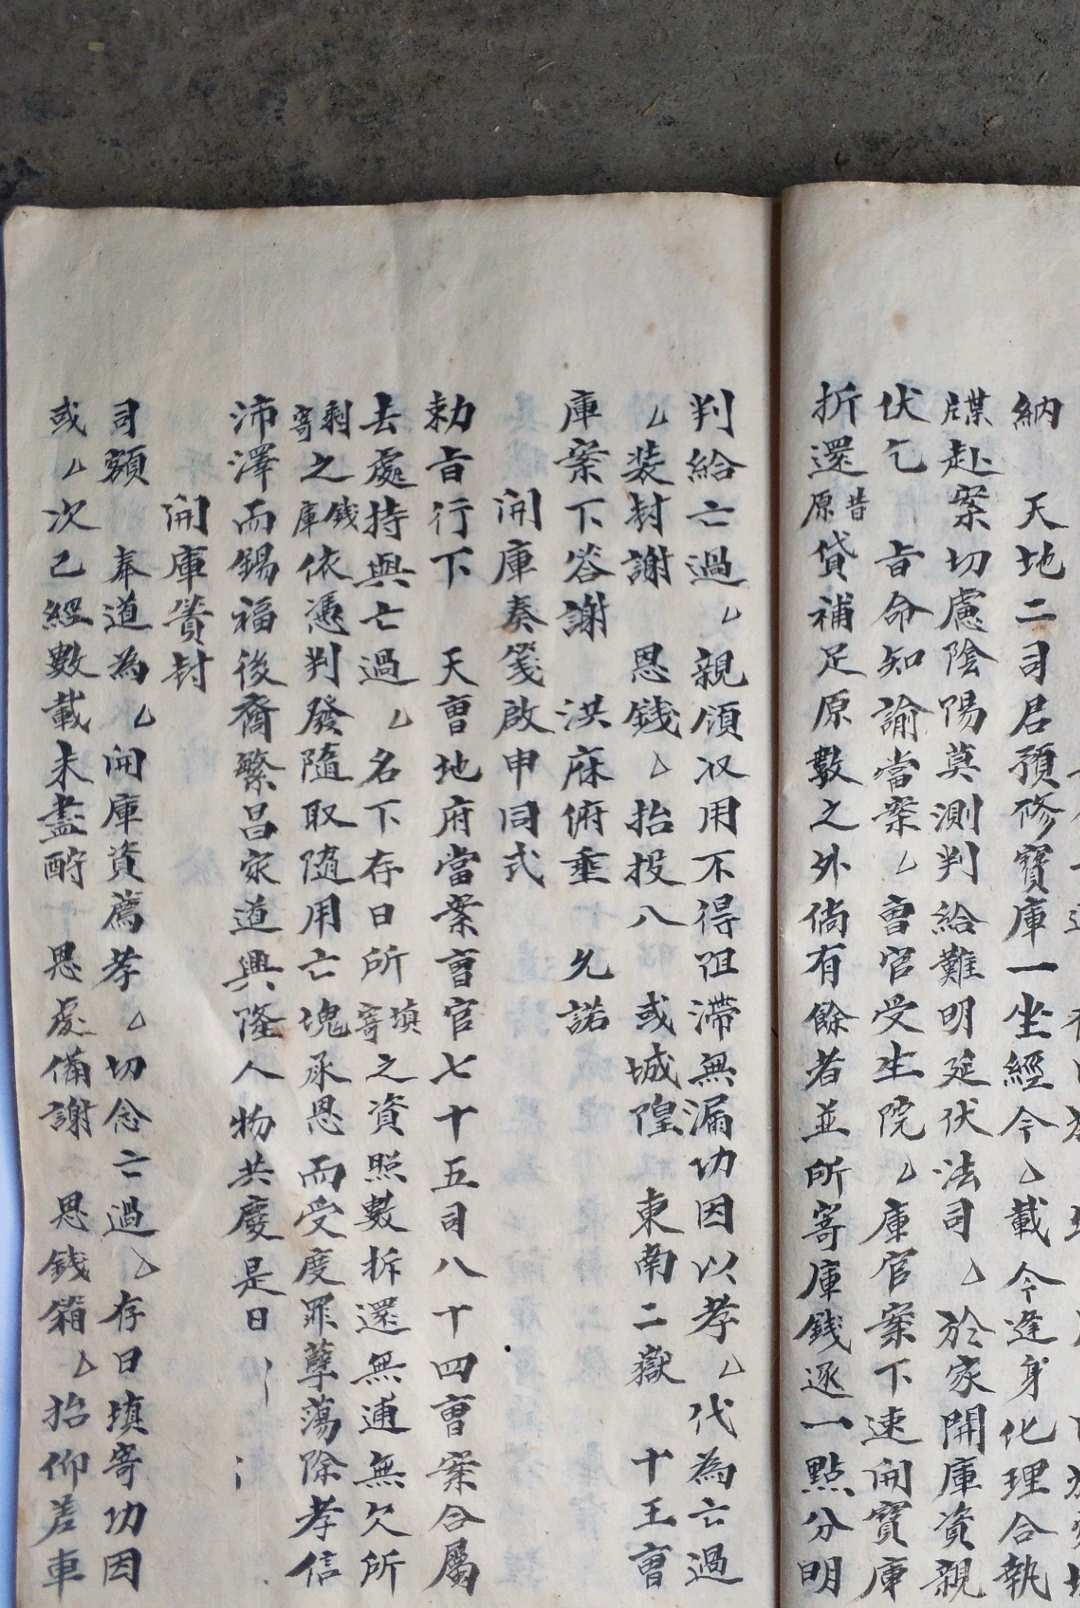 納　天地二司君預修寶庫一坐經今厶載今逢身化理合執
牒赴案切慮陰陽莫測判給難明延伏法司厶於家開庫資親
伏乞　旨命知諭當案厶曹官受生院厶庫官案下速開寶庫
折還昔原貸補足原數之外倘有餘者並所寄庫錢逐一點分明
判給亡過厶親領収用不得阻滯無漏功因以孝厶代為亡過
厶裝封謝　恩錢厶抬投八　或城隍　東南二嶽　十王曹
庫案下答謝　洪庥俯垂　允諾
開庫奏箋啟申同式
勅旨行下　天曹地府當案曹官七十五司八十四曹案合屬
去處持與亡過厶名下存日所填寄之資照數拆還無逋無欠所
剩寄之錢庫依憑判發隨取隨用亡塊承恩而受度罪孽蕩除孝信
沛澤而錫福後裔繁昌家道興隆人物共慶是日
開庫賫封
司額　奉道為厶開庫資薦孝厶切念亡過厶存日填寄功因
或厶次已經數載未盡酧　恩處備謝　恩錢箱厶抬仰差車